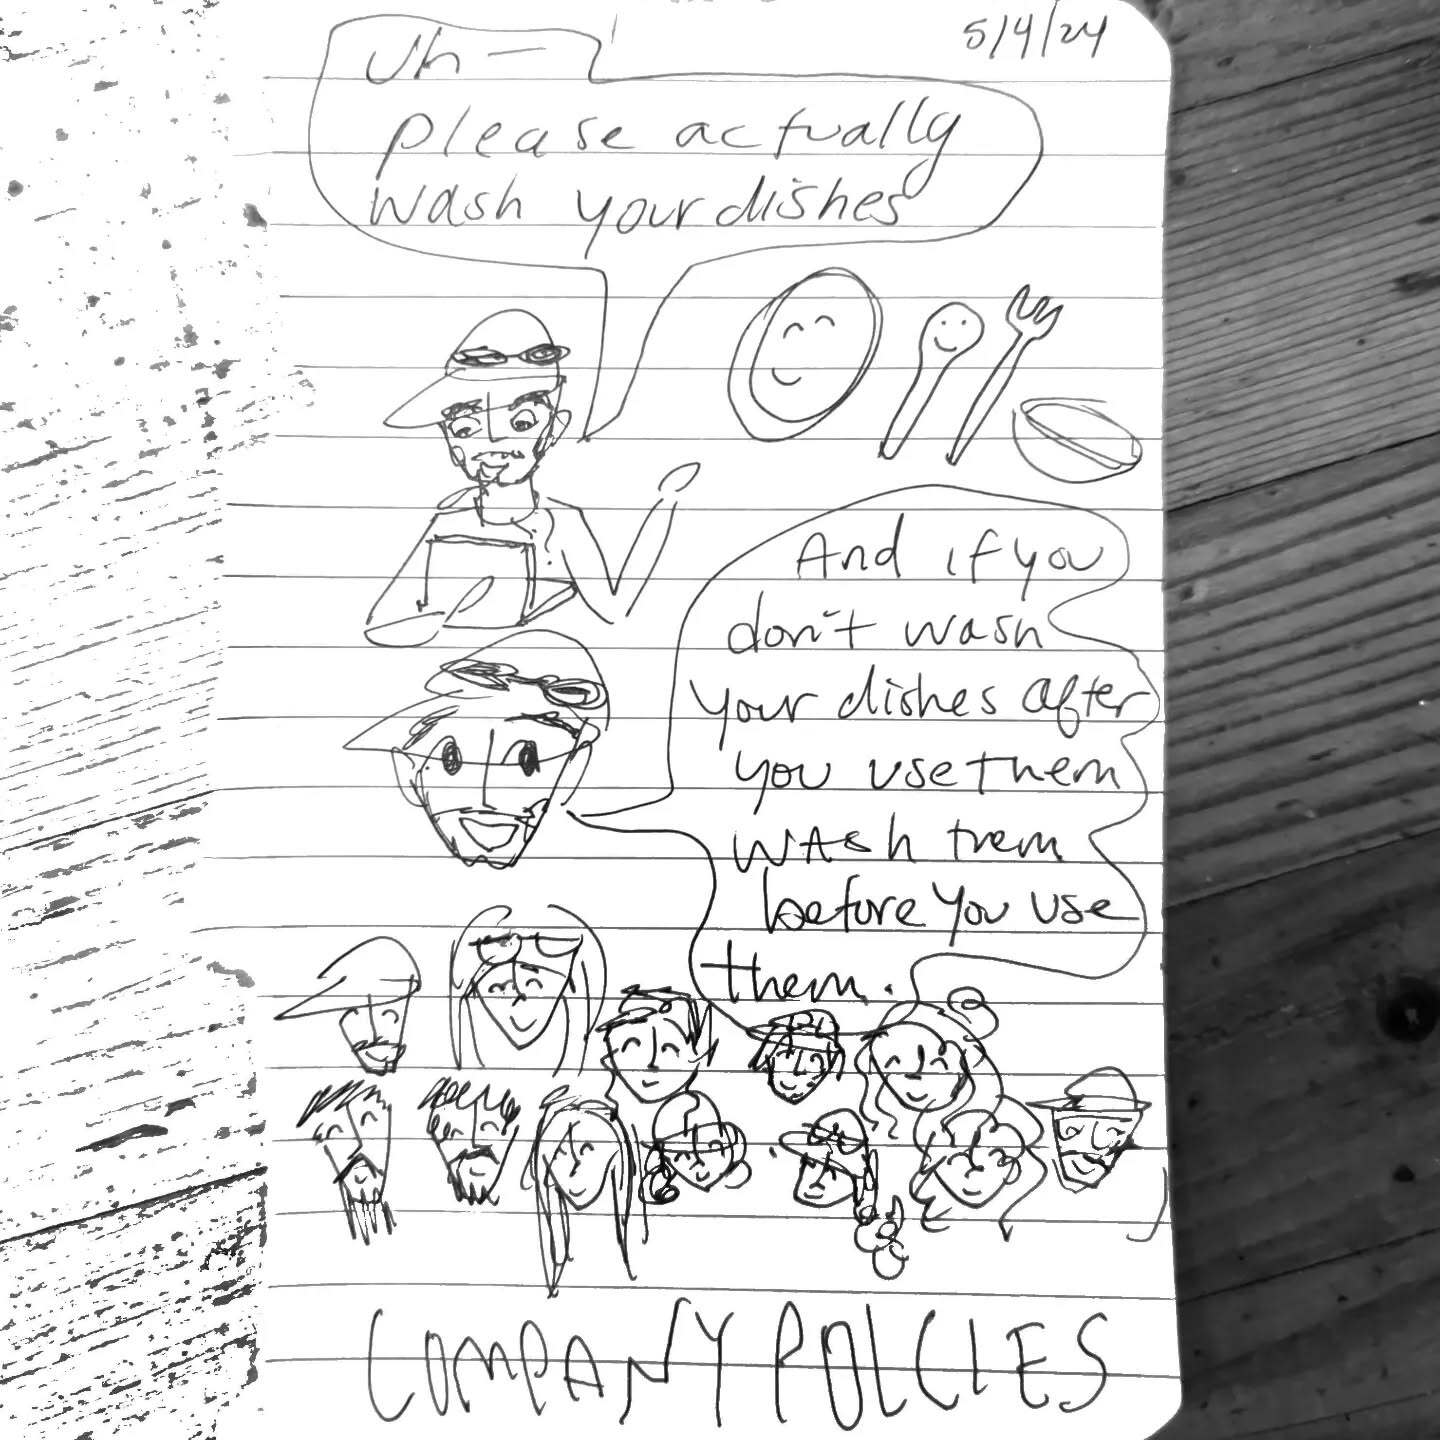 5/4/24
Uh —
please actually
wash your dishes
And if you
don't wash
your dishes after
you use them
wash them
before you use
them.
COMPANY POLCIES